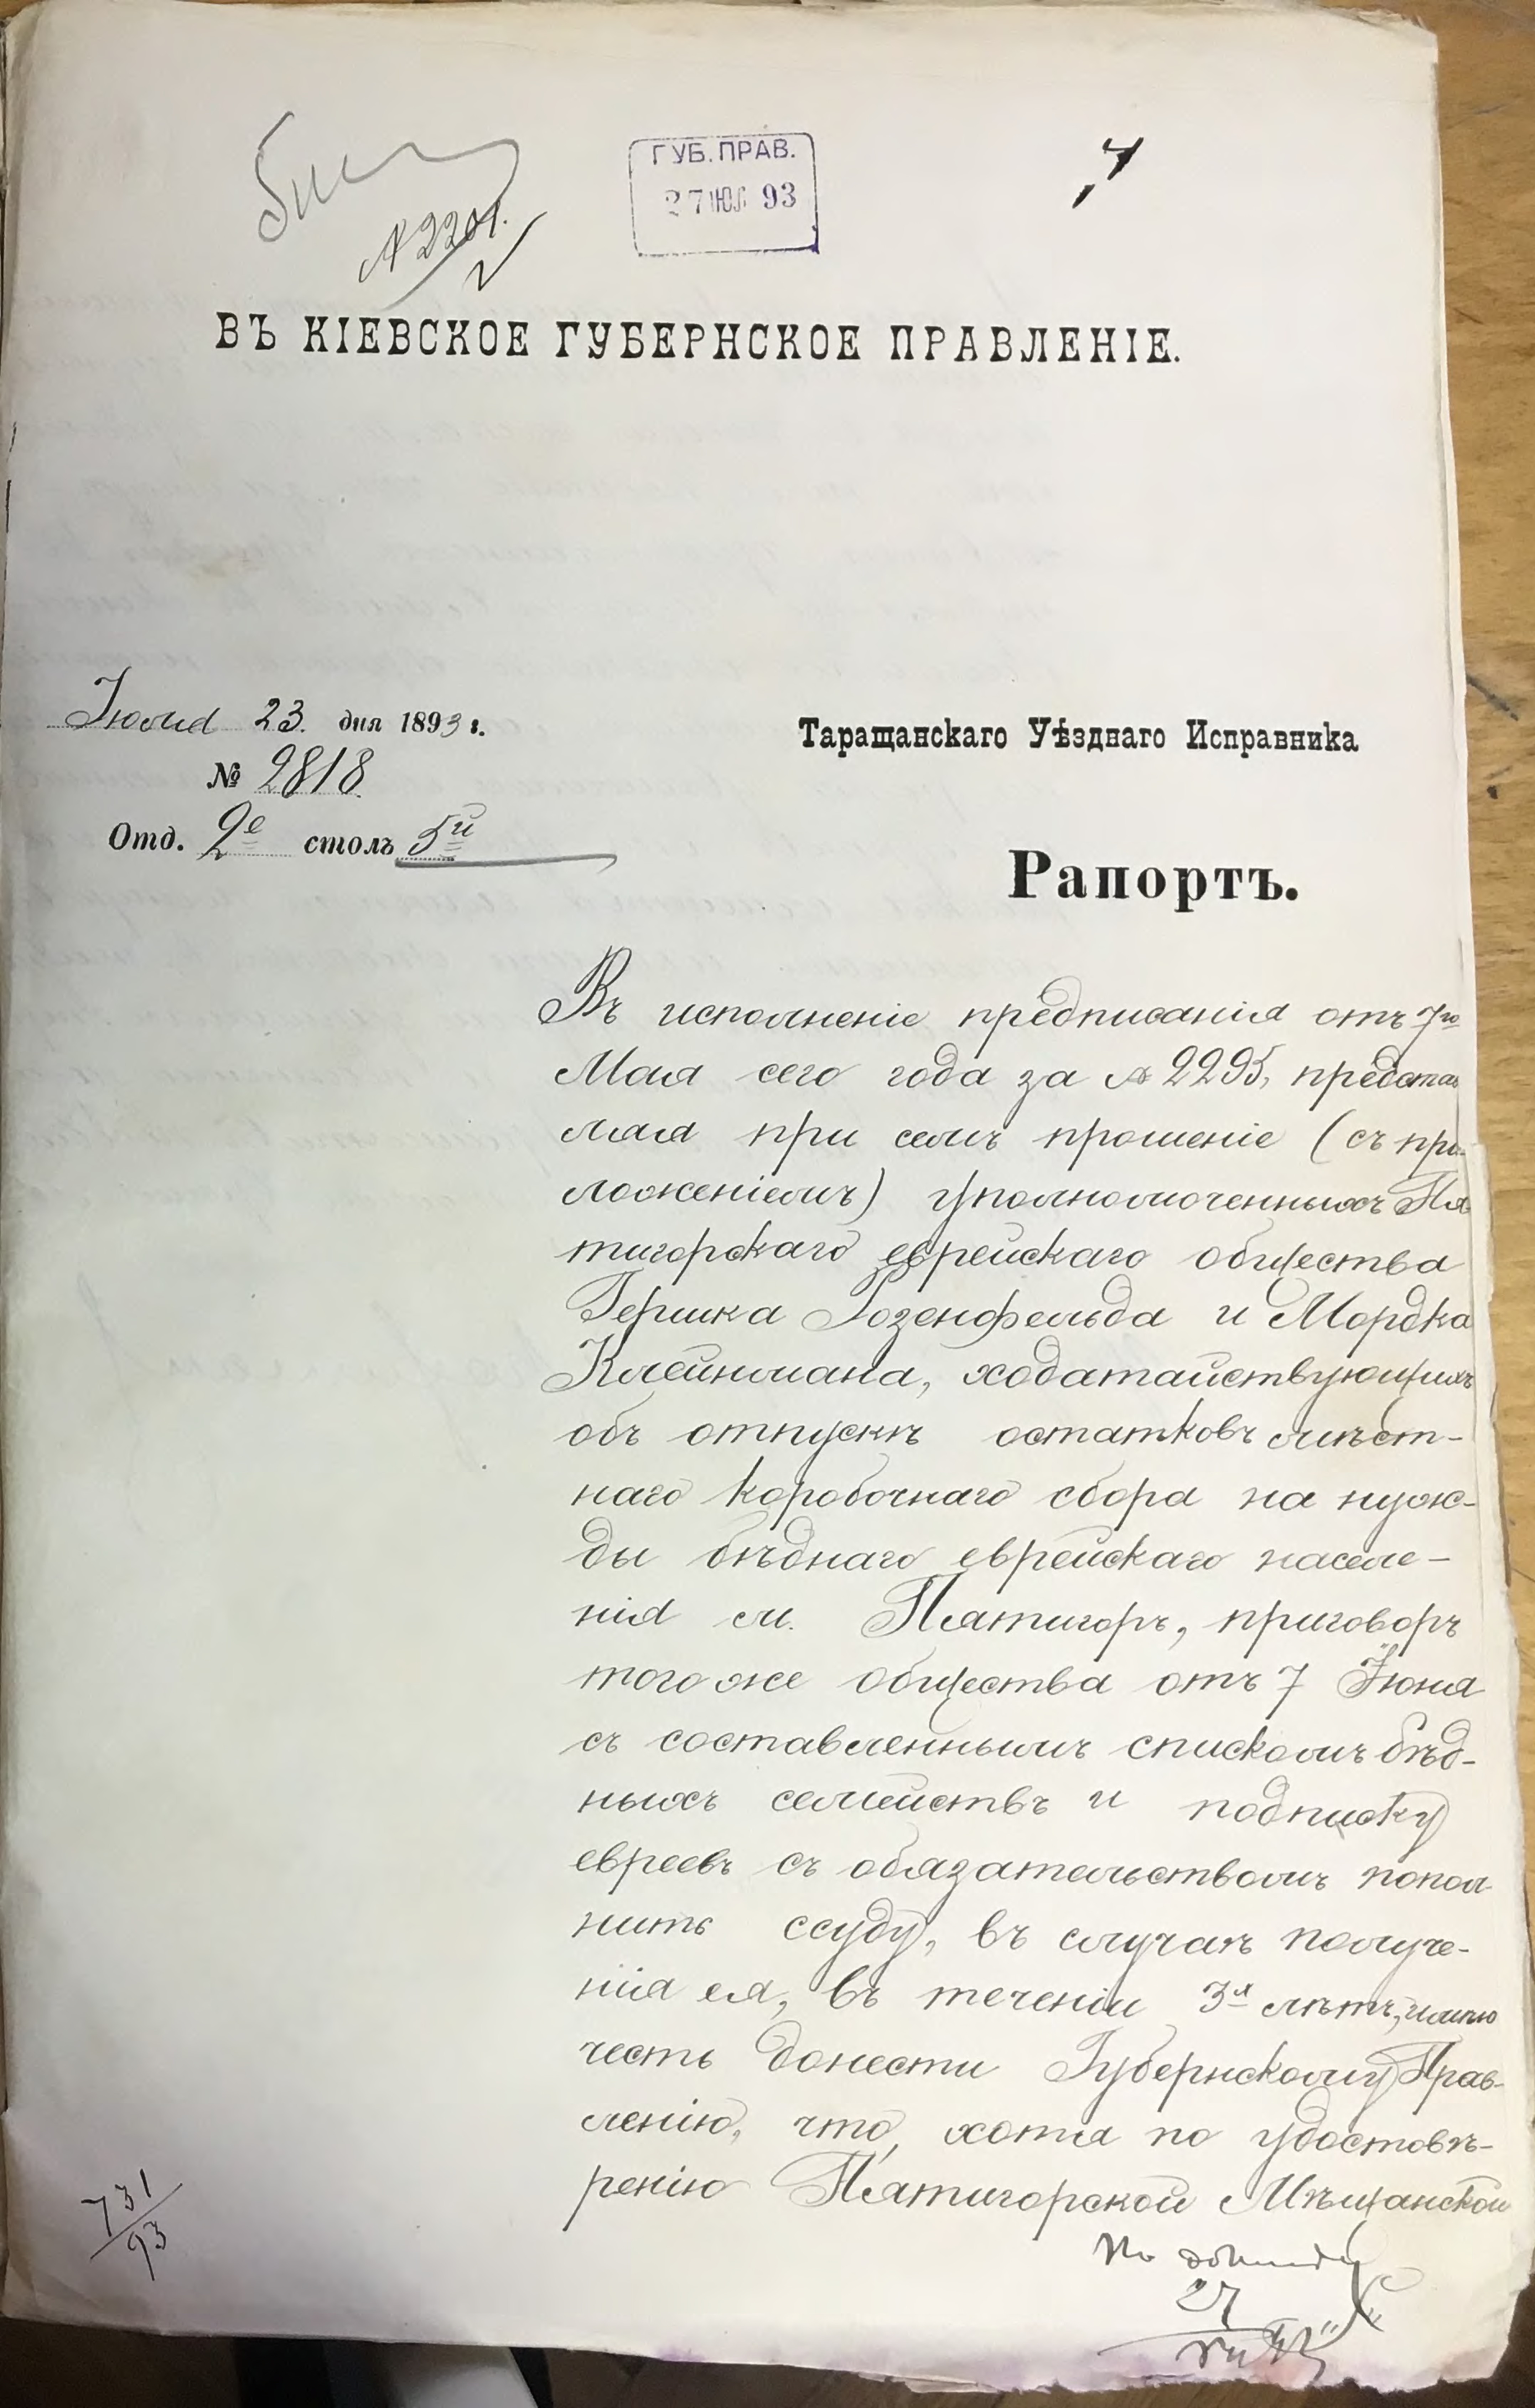 № 2201.
ГУБ. ПРАВ.
27 ІЮЛ 93
4
ВЪ КІЕВСКОЕ ГУБЕРНСКОЕ ПРАВЛЕНІЕ.
Іюля 23. дня 1893 г.
№ 2818
Отд. 2е столъ 5й
Таращанскаго Уѣзднаго Исправника
Рапортъ.
Въ исполненіе предписанія отъ 7го
Мая сего года за № 2295, представ
ляя при семъ прошеніе (съ при-
ложеніемъ) уполномоченныхъ Пя
тигорскаго еврейскаго общества
Гершка Розенфельда и Мордка
Клейнмана, ходатайствующихъ
объ отпускѣ остатковъ мѣст-
наго коробочнаго сбора на нуж-
ды бѣднаго еврейскаго населе-
нія м. Пятигоръ, приговоръ
того же общества отъ 7 Іюня
съ составленнымъ спискомъ бѣд-
ныхъ семействъ и подписку
евреевъ съ обязательствомъ попол
нить ссуду, въ случаѣ получе-
нія ея, въ теченіи 3х лѣтъ, имѣю
честь донести Губернскому Прав-
ленію, что, хотя по удостовѣ-
ренію Пятигорской Мѣщанской
731/93
По
27